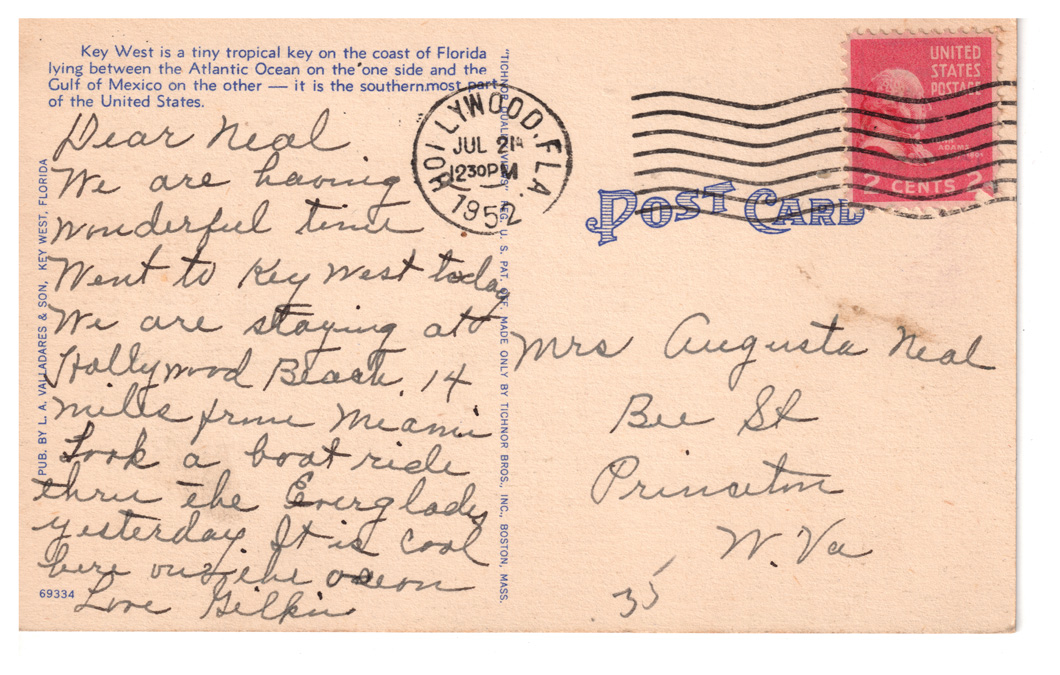 Key West is a tiny tropical key on the coast of Florida
lying between the Atlantic Ocean on the one side and the
Gulf of Mexico on the other — it is the southernmost part
of the United States.
Dear Neal
We are having
wonderful time
Went to Key West today
We are staying at
Hollywood Beach, 14
miles from Miami
Took a boat ride
thru the Everglades
yesterday. It is cool
here on the ocean
Love
69334
PUB. BY L. A. VALLADARES & SON, KEY WEST, FLORIDA
"TICHNOR QUALITY VIEWS" REG. U. S. PAT. OFF. MADE ONLY BY TICHNOR BROS., INC., BOSTON, MASS.
HOLLYWOOD, FLA.
JUL 21
1230 PM
1952
UNITED
STATES
POSTAGE
JOHN
ADAMS
2 CENTS 2
POST CARD
Mrs Augusta Neal
Bee St
Princeton
W. Va
35